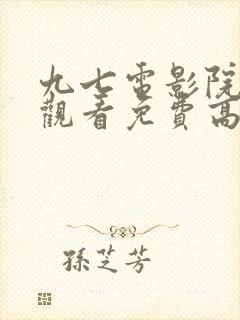 九七電影院
觀看免費高
孫芝芳